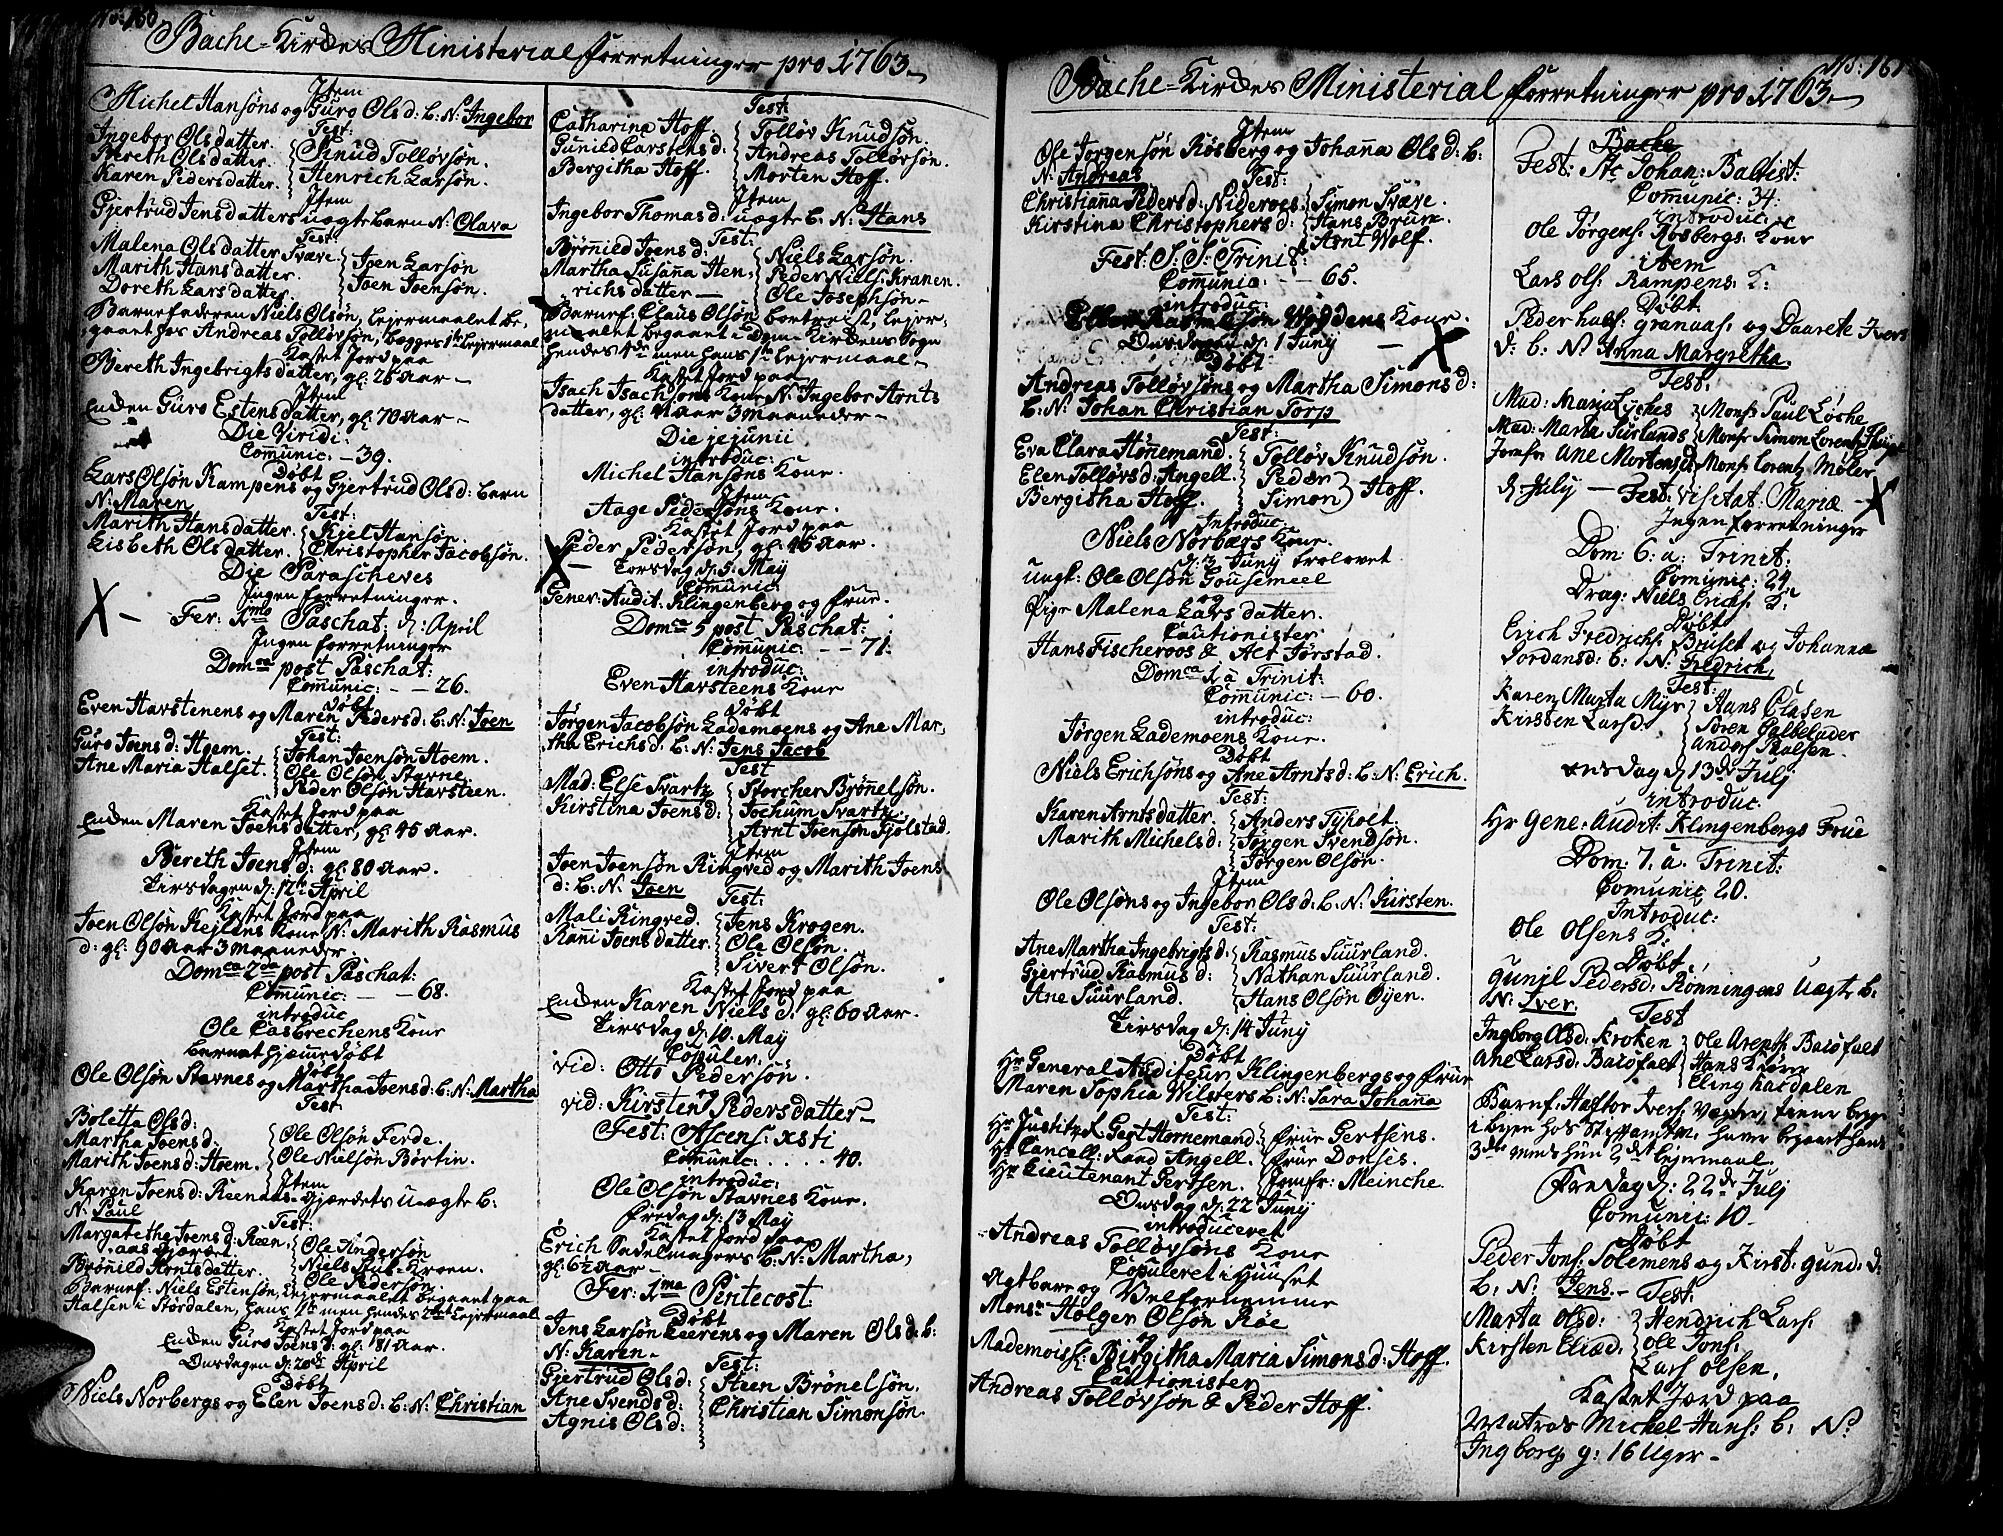 No: 160
Bache-Kirdes Ministerial forretninger pro 1763
Item
Michel Hansøns og Guro Olsd: b: N: Ingebor
Test:
Ingebor Olsdatter. Knud Tolløvsøn.
Bereth Olsdatter. Henrich Larsøn.
Karen Pedersdatter.
Item
Gjertrud Jensdatters uægte barn N: Olava
Test:
Malena Olsdatter Svære. Joen Larsøn
Marith Hansdatter. Joen Joensøn.
Doreth Larsdatter.
Barnefaderen Niels Olsøn, Lejermaalet be-
gaaet for Andreas Tolløvsøn, begges 1te Lejermaal
Kastet Jord paa
Bereth Ingebrigtsdatter, gl: 26 Aar
Item
Enden Guro Estensdatter, gl: 70 Aar
Die Viridi:
Comunic: 39.
Døbt
Lars Olsøn Rampens og Gjertrud Olsd: barn
N: Maren
Test:
Marith Hansdatter. Kjel Hansøn.
Lisbeth Olsdatter. Christopher Jacobsøn.
Die Parascheves
Ingen forretninger.
X Fer: 1ma Paschat. d: April
Ingen forretninger
Domca post Paschat:
Comunic: 26.
Døbt
Even Havstenens og Maren Pedersd: b: N: Joen
Test:
Guro Joensd: Hoem. Johan Joensøn Hoem.
Ane Maria Halset. Ole Olsøn Stavne.
Peder Olsøn Havsteen.
Kastet Jord paa
Enden Maren Joensdatter, gl: 45 Aar.
Item
Bereth Joensd: gl: 80 Aar.
Tirsdagen d: 12te April
Kastet Jord paa
Joen Olsøn Kejlens Kone N: Marith Rasmus
d: gl: 90 Aar 3 maaneder
Domca 2da post Paschat:
Comunic: 68.
introduc
Ole Casbrechens Kone
barnet hjemmedøbt
Døbt
Ole Olsøn Stavnes og Martha Joensd: b: N: Martha
Test
Boletta Olsd:
Martha Joensd: Ole Olsøn Ferde.
Marith Joensd: Hoem. Ole Nielsøn Børtin.
Item
Karen Joensd: Reenaas-gjærdets uægte b:
N: Paul
Test:
Margrethe Joensd: Reen, Ole Andersøn
aasgjæret. Niels Rub-Kroen.
Brønild Arntsdatter. Ole Pedersøn.
Barnef: Niels Estensøn, Lejermaalet begaaet paa
Halsen i Størdalen, hans 1te men hendes 2det Lejermaal
Kastet Jord paa
Enden Guro Joensd: gl: 81 Aar.
Onsdagen d: 20de April
Døbt
Niels Norbergs og Elen Joensd: b: N: Christian
Test:
Catharina Hoff. Tolløv Knudsøn.
Gunild Carstensd: Andreas Tolløvsøn.
Bergitha Hoff. Morten Hoff.
Item
Ingebor Thomasd: uægte b: N: Hans
Test:
Brønild Joensd: Niels Larsøn.
Martha Susana Hen, Peder Niels: Kranen.
richsdatter Ole Josephsøn
Barnef: Claus Olsøn bortreist, Lejer-
maalet begaaet i Dom-Kirdens Sogn
hendes 4de men hans 1te Lejermaal
Kastet Jord paa
Isach Isachsøns Kone N: Ingebor Arnts
datter, gl: 41 Aar 3 maaneder
Die jejunii
introduc:
Michel Hansøns Kone.
Item
Aage Pedersøns Kone.
Kastet Jord paa
Peder Pedersøn, gl: 46 Aar.
X Torsdag d: 5 May
Comunic:
Gener: Audit: Klingenberg og frue.
Domca 5 post Paschat:
Comunic: 71.
introduc:
Even Havsteens Kone
Døbt
Jørgen Jacobsøn Lademoens og Ane Mar,
tha Erichsd: b: N: Jens Jacob
Test
Mad: Else Svartz Storcher Brønelsøn.
Kirstina Joensd: Jochum Svartz.
Arnt Joensøn Fjølstad.
Item
Joen Joensøn Ringved og Marith Joens
d: b: N: Joen
Test:
Mali Ringved. Jens Krogen.
Rani Joensdatter. Ole Olsøn.
Sivert Olsøn.
Kastet Jord paa
Enden Karen Nielsd: gl: 60 Aar.
Tirsdag d: 10. May
Copuler:
vid: Otto Pedersøn.
og
vid: Kirsten Pedersdatter
Fest: Ascens: xsti
Comunic: 40.
introduc:
Ole Olsøn Stavnes Kone.
Fredag d: 13 May
Kastet Jord paa
Erich Sadelmagers b: N: Martha,
gl: 6½ Aar
Fer: 1ma Pentecost:
Døbt
Jens Larsøn Leerens og Maren Olsd: b:
N: Karen
Test:
Gjertrud Olsd: Steen Brønelsøn.
Ane Svendsd: Christian Simonsøn.
Agnis Olsd:
No: 161
Bache-Kirdes Ministerial forretninger pro 1763
Item
Ole Jørgensøn Røsberg og Johana Olsd: b:
N: Andreas
Test:
Christiana Pedersd: Nideroes. Simon Svære.
Kirstina Christophersd: Hans Brun.
Arnt Wolf.
Fest: S: S: Trinit:
Comunic: 65.
introduc:
Kone.
Onsdagen d: 1 Juny X
Døbt
Andreas Tolløvsøns og Martha Simonsd:
b: N: Johan Christian Torp
Test:
Eva Clara Hornemand. Tolløv Knudsøn.
Elen Tolløvsd: Angell. Peder
Bergitha Hoff. Simon Hoff.
Introduc:
Niels Norbærs Kone.
d: 3 Juny trolovet
ungk: Ole Olsøn Gousemeel
og
Pige Malena Larsdatter.
Cautionister
Hans Fischeroos & Act Jørstad.
Domca 1 a Trinit:
Comunic: 60.
introduc:
Jørgen Lademoens Kone.
Døbt
Niels Erichsøns og Ane Arntsd: b: N: Erich.
Test:
Karen Arntsdatter. Anders Tyholt.
Marith Michelsd: Jørgen Svendsøn.
Jørgen Olsøn.
Item
Ole Olsøns og Ingebor Olsd: b: N: Kirsten.
Test:
Ane Martha Ingebrigtsd: Rasmus Suurland.
Gjertrud Rasmusd: Nathan Suurland.
Ane Suurland. Hans Olsøn Øyen.
Tirsdag d: 14 Juny
Døbt
Hr General Auditeur Klingenbergs og frue
Maren Sophia Wilsters b: N: Sara Johana
Test:
Hr Justitzr Gest Hornemand. frue Gertsens.
Hr Cancell: Raad Angell. frue Donses.
Hr Lieutenant Gertsen. Jomfr: Meinche.
Onsdag d: 22 Juny
introduceret
Andreas Tolløvsøns Kone
Copuleret i Huuset
Agtbare og Velfornemme
Monsr Holger Olsøn Røe
og
Mademoisl: Birgitha Maria Simonsd: Hoff.
Cautionister
Andreas Tolløvsøn & Peder Hoff.
Bache
Fest: St: Johan: Baltist:
Comunic: 34.
introduc:
Ole Jørgens: Røsbergs Kone
item
Lars Ols: Rampens K:
Døbt
Peder hals: granaas. og Daarete Ivers
d: b: N: Anna Margretha.
Test:
Mad: Maria Lyches Monsr Paul Løche
Mad: Marta Surlands Monsr Simon Lorentz
Jomfr Ane Mortensd: Monsr Lorentz Møler
d July Fest: visitat: Mariæ X
Ingen forretninger
Dom: 6: a: Trinit:
Comunic: 24.
Drag: Niels Erichs: K:
Døbt
Erich Fredrichs: Bruset og Johanna
Jordansd: b: N: Fredrich,
Test:
Karen Marta Myr Hans Olasen
Kirsten Larsd: Søren Galbeluder
Anders Skalsen.
Onsdag d 13de Julj
introduc:
Hr Gene: Audit: Klingenbergs Frue
Dom: 7. a. Trinit:
Comunic 20.
Introduc:
Ole Olsens K
Døbt
Gunil Pedersd: Rønningens Uægte b:
N: Iver.
Test
Ingborg Olsd: Kroken Ole Arenth: Barøfalt
Ane Larsd: Barøfalt Hans Krøner
Eling hardalen
Barnf: Hastor Ivers:
3de mens hun 2det Lejermaal.
Fredag d: 22de Julj
Comunic: 10
Døbt
Peder Jons: Solemens og Kirst: gund: d:
b: N: Jens.
Test:
Marta Olsd: Hendrich Lars:
Kirsten Eliæd: Ole Jons:
Lars Olsen,
Kastet Jord paa
Matros Michel Hans: b: N:
Ingborg g: 16 Uger